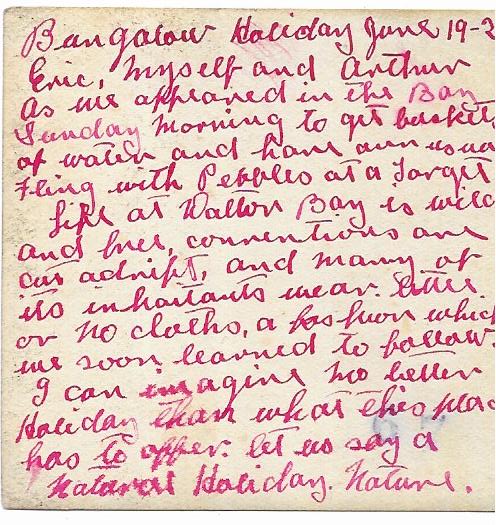 Bungalow Holiday June 19-2
Eric, Myself and Arthur
As we appeared in the Bay
Sunday Morning to get buckets
of water and have our usual
Fling with Pebbles at a Target
Life at Walton Bay is wild
and free, conventions are
cut adrift, and many of
its inhabitants wear little
or no cloths, a fashion which
we soon learned to follow.
I can imagine no better
Holiday than what this place
has to offer. let us say a
Natural Holiday. Nature.